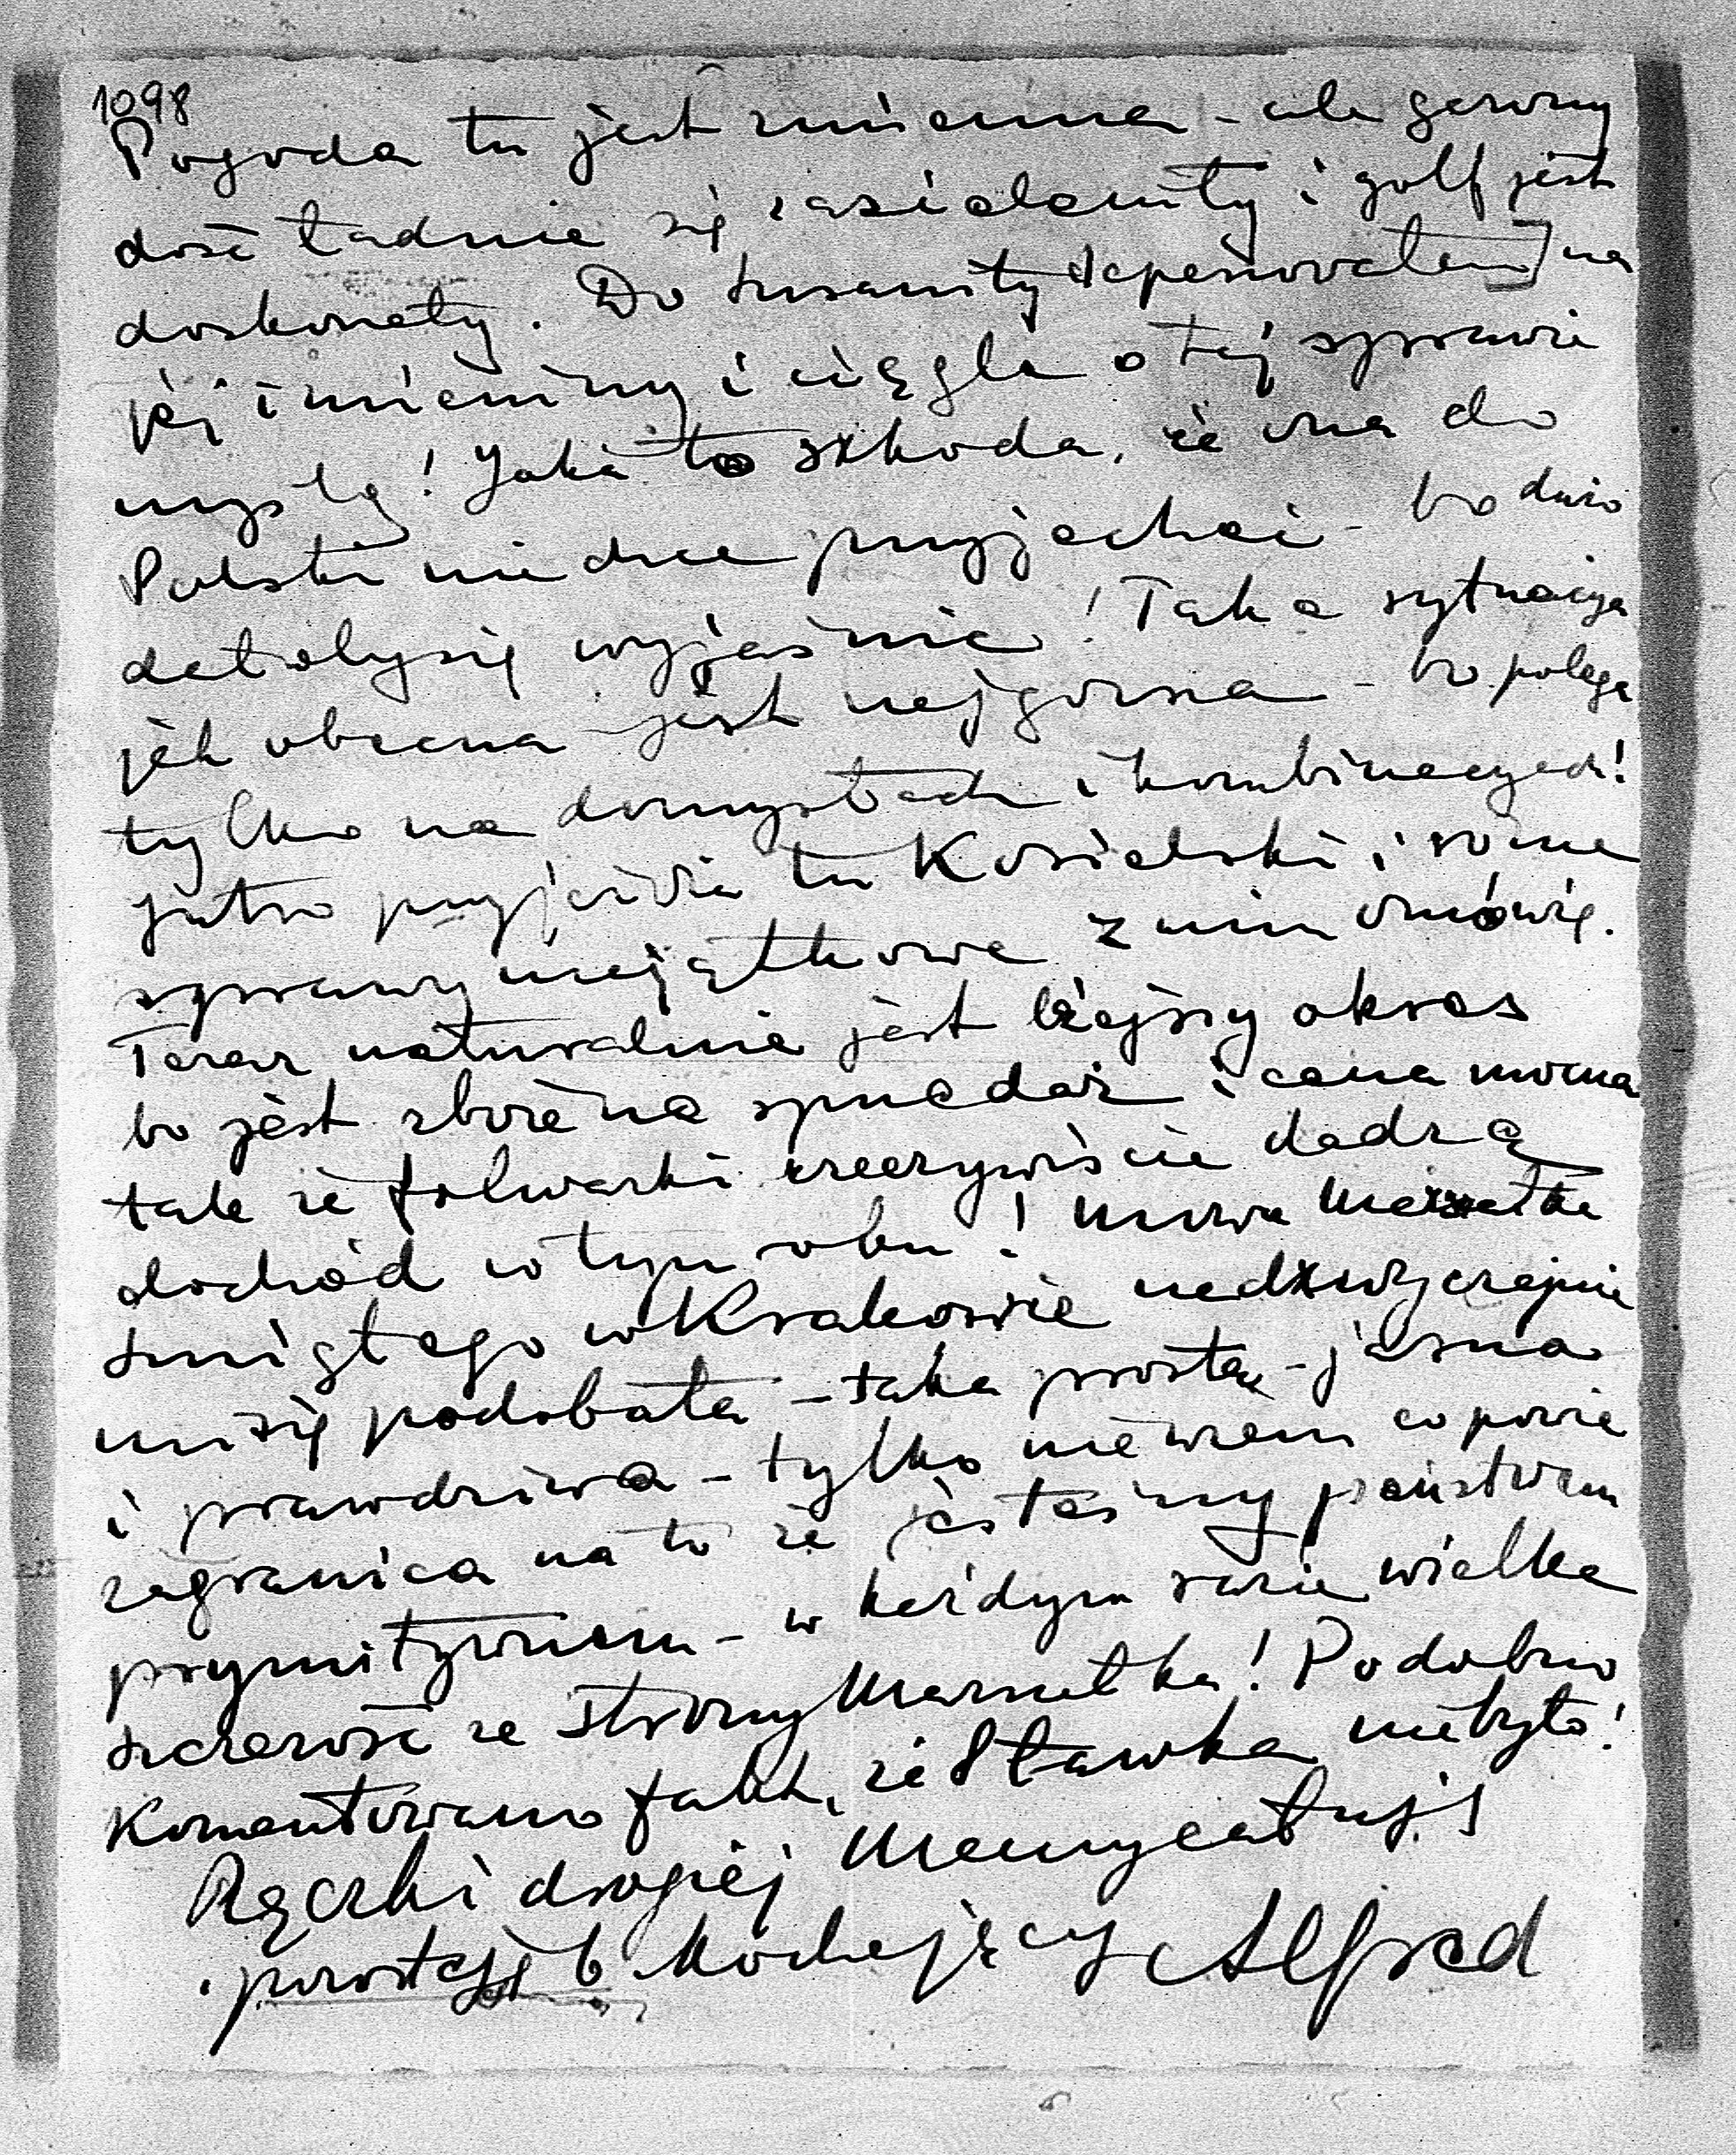 1098
Pogoda tu jest zmienna - ale gazony
dość ładnie się zazieleniły i golf jest
doskonały. Do Zuzanny depeszowałem na
jej imieniny i ciągle o tej sprawie
myślę! Jaka to szkoda, że ona do
Polski nie chce przyjechać - bo dużo
dałoby się wyjaśnić! Taka sytuacya
jak obecna jest najgorsza - bo polega
tylko na domysłach i kombinacyach!
Jutro przyjeżdża tu Kosielski i różne
sprawy majątkowe z nim omówię.
Teraz naturalnie jest lżejszy okres
bo jest zboże na sprzedaż i cena mocna
tak że folwarki rzeczywiście dadzą
dochód w tym roku! Mowa Marszałka
Śmigłego w Krakowie nadzwyczajnie
mi się podobała - taka prosta - jasna
i prawdziwa - tylko nie wiem co powie
zagranica na to że jesteśmy państwem
prymitywnem - w każdym razie wielka
szczerość ze strony Marszałka! Podobno
Komentowano fakt, że Sławka nie było!
Rączki drogiej Mamy całuję
pozostaję b. kochający Alfred